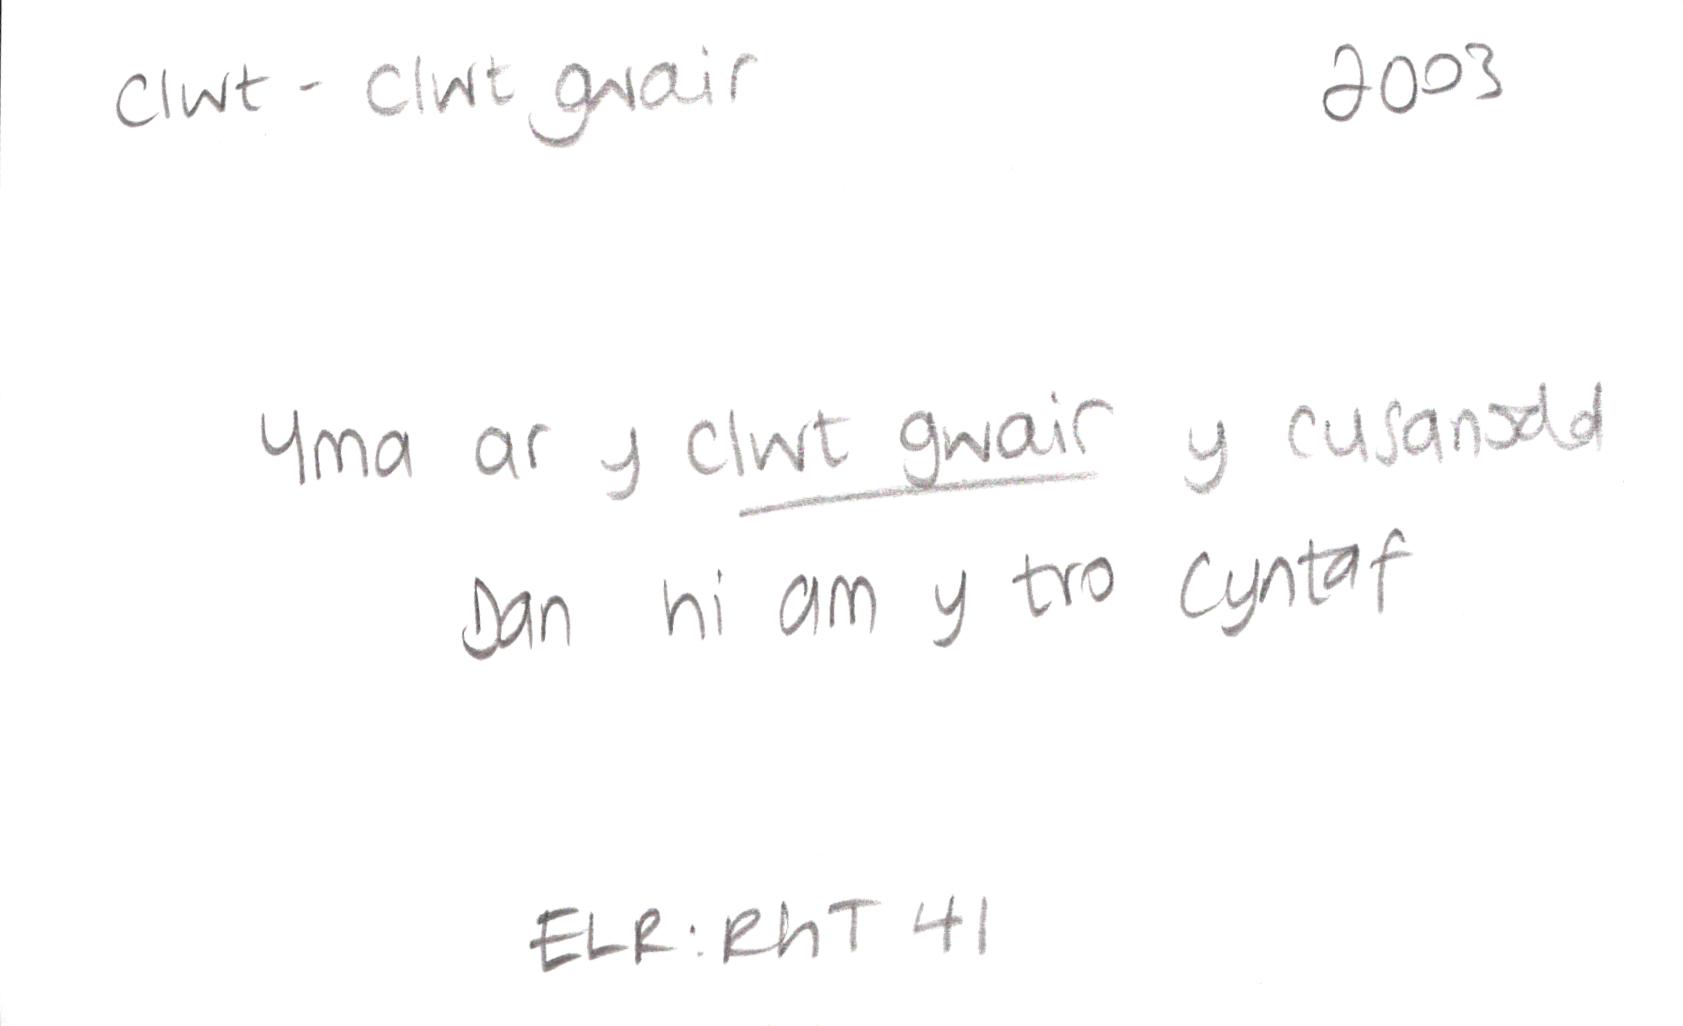 Clwt - Clwt gwair 2003
Yma ar y clwt gwair y cusanodd
Dan hi am y tro cyntaf
ELR: RhT 41